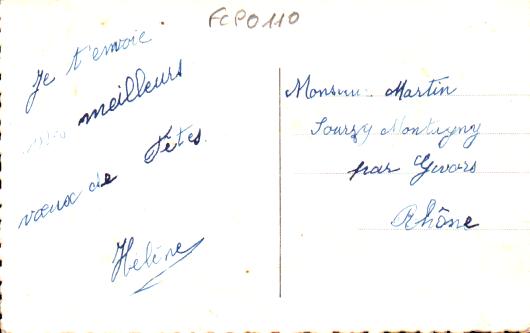 FCP0110
Je t'envoie
mes meilleurs
vœux de Fêtes.
Hélène
Monsieur Martin
Sourzy Montagny
par Givors
Rhône